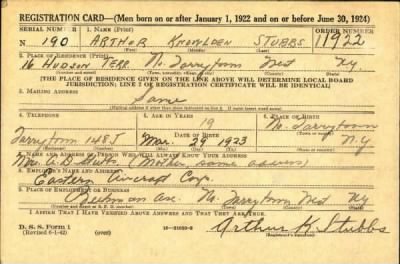 REGISTRATION CARD—(Men born on or after January 1, 1922 and on or before June 30, 1924)
SERIAL NUMBER 1. NAME (Print) ORDER NUMBER
N 190 ARTHUR KNOWLDEN STUBBS 11922
2. PLACE OF RESIDENCE (Print)
16 Hudson Terr. No. Tarrytown West NY
[THE PLACE OF RESIDENCE GIVEN ON THE LINE ABOVE WILL DETERMINE LOCAL BOARD
JURISDICTION; LINE 2 OF REGISTRATION CERTIFICATE WILL BE IDENTICAL]
3. MAILING ADDRESS
Same
4. TELEPHONE 5. AGE IN YEARS 6. PLACE OF BIRTH
19 No. Tarrytown
DATE OF BIRTH
Tarrytown 148J Mar. 29 1923 N.Y
7. NAME AND ADDRESS OF PERSON WHO WILL ALWAYS KNOW YOUR ADDRESS
Mrs. (Mother, same address)
8. EMPLOYER'S NAME AND ADDRESS
Eastern Aircraft Corp.
9. PLACE OF EMPLOYMENT OR BUSINESS
Beekman Ave. No. Tarrytown West NY
I AFFIRM THAT I HAVE VERIFIED ABOVE ANSWERS AND THAT THEY ARE TRUE.
D. S. S. Form 1
(Revised 6-1-42) (over)
Arthur K. Stubbs